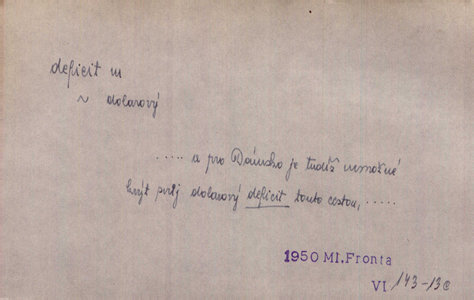 deficit m
~ dolarový
..... a pro Dánsko je tudíž nemožné
krýt svůj dolarový deficit touto cestou, .....
1950 Ml. Fronta
VI 143-13c